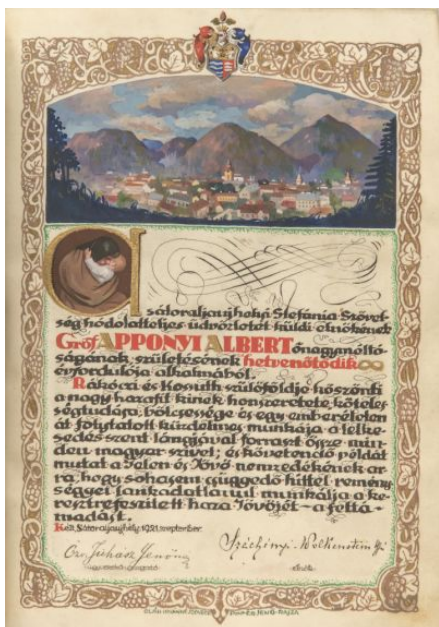 A
sátoraljaujhelyi Stefánia Szövet-
ség hódolatteljes üdvözletét küldi elnökének
Gróf APPONYI ALBERT őnagyméltó-
ságának, születésének hetvenötödik
évfordulója alkalmából.
Rákóczi és Kossuth szülőföldje köszönti
a nagy hazafit kinek honszeretete, köteles-
ségtudása, bölcsessége és egy emberéleten
át folytatott küzdelmes munkája a lelke-
sedés szent lángjával forraszt össze min-
den magyar szivet; és követendő példát
mutat a Jelen és Jövő nemzedékének ar-
ra, hogy sohasem csüggedő hittel remény-
séggel lankadatlanul munkálja a ke-
resztrefeszitett haza Jövőjét - a feltá-
madást.
Kelt, Sátoraljaujhely, 1921. szeptember.
Özv. Juhász Jenőné
Széchényi-Wolkenstein
elnök